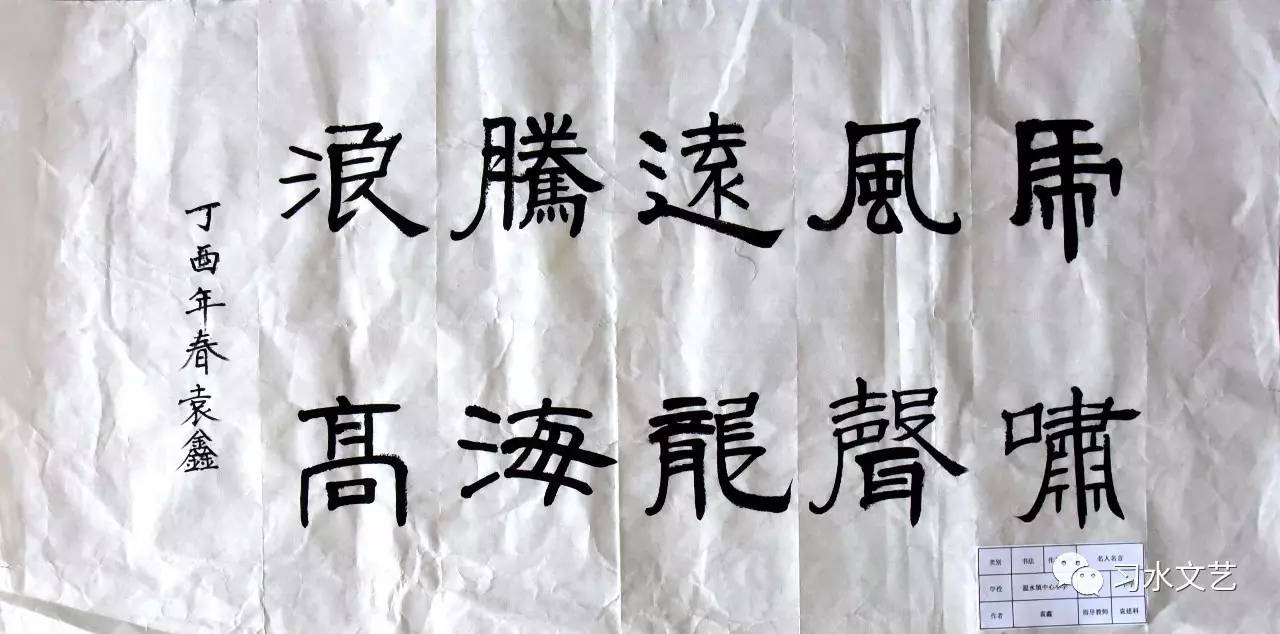 虎嘯
風聲
遠龍
騰海
浪髙
丁酉年春袁鑫
类别 书法 作 名人名言
学校 温水镇中心小学
作者 袁鑫 指导教师 袁建科
习水文艺